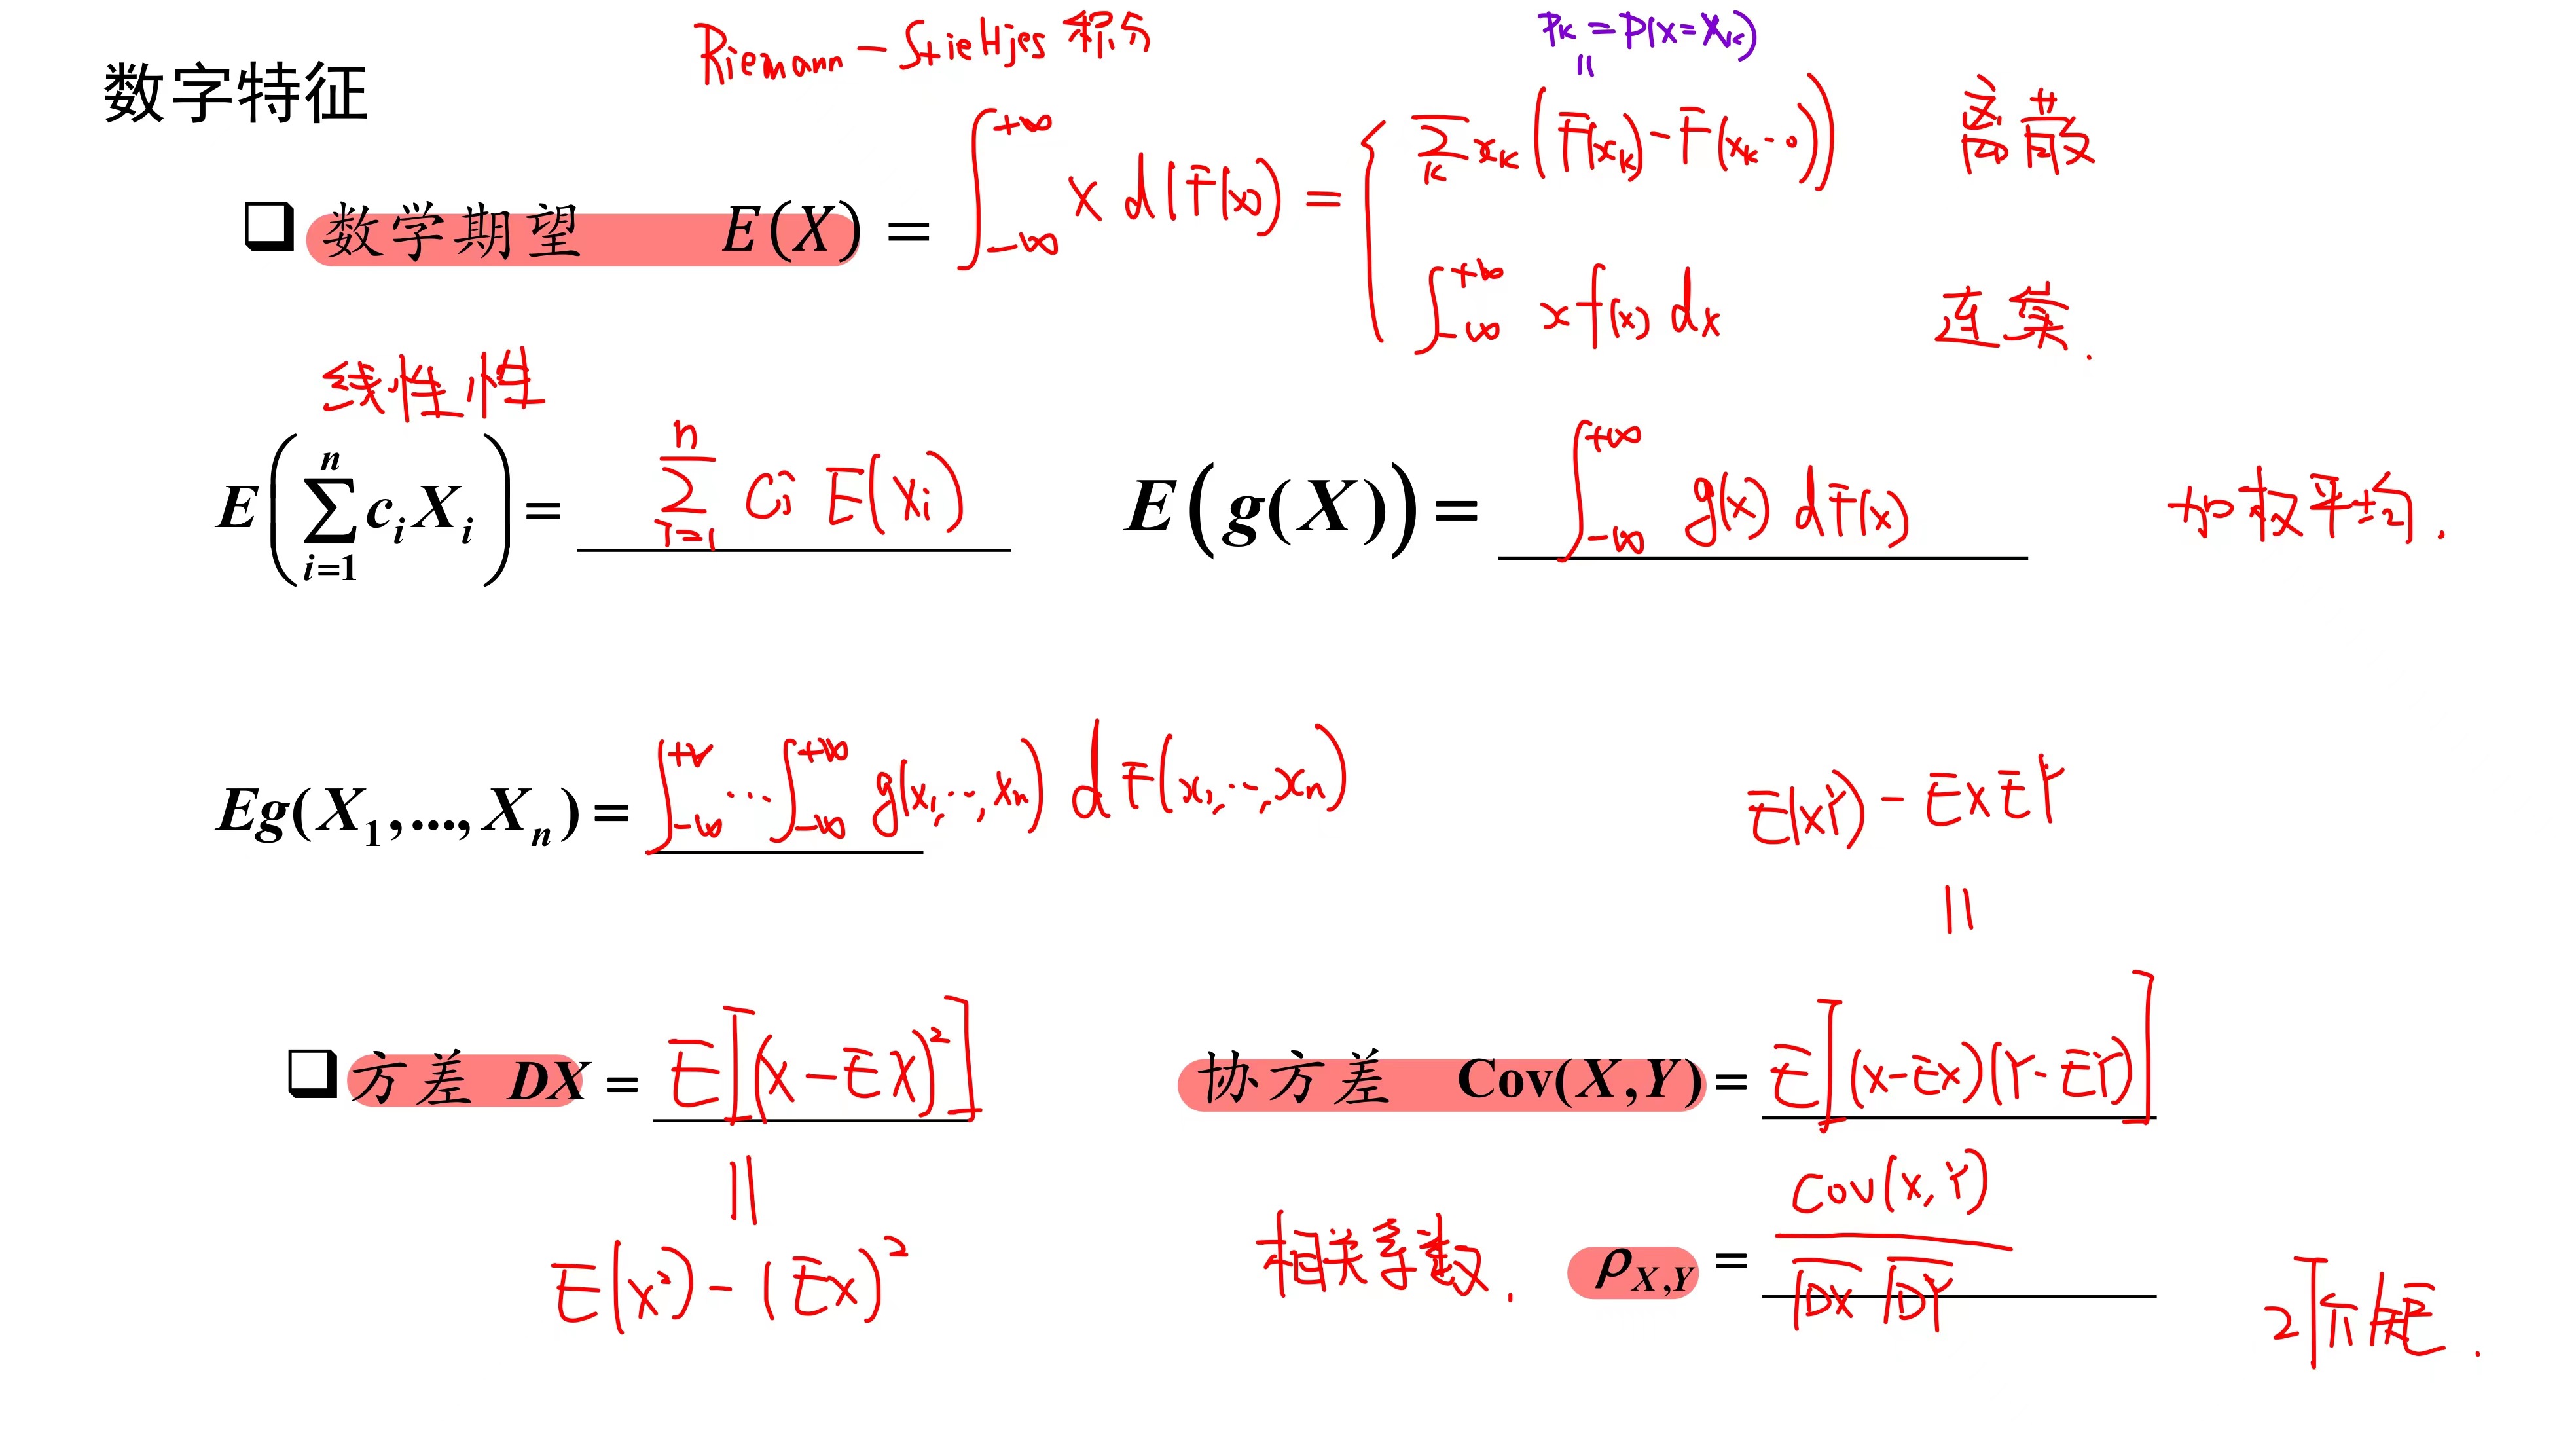 Riemann-Stieltjes 积分
p_k = P(X=X_k)
||
数字特征
❑ 数学期望 E(X) = ∫_{-∞}^{+∞} x d(F(x)) = { ∑_k x_k (F(x_k) - F(x_k - 0)) 离散
∫_{-∞}^{+∞} x f(x) dx 连续.
线性性
E(∑_{i=1}^{n} c_i X_i) = ∑_{i=1}^{n} c_i E(X_i) E(g(X)) = ∫_{-∞}^{+∞} g(x) dF(x) 加权平均.
Eg(X_1,...,X_n) = ∫_{-∞}^{+∞} ... ∫_{-∞}^{+∞} g(x_1,...,x_n) dF(x_1,...,x_n)
E(XY) - EXEY
||
❑ 方差 DX = E[(X-EX)^2] 协方差 Cov(X,Y) = E[(X-EX)(Y-EY)]
||
E(X^2) - (EX)^2
相关系数. ρ_{X,Y} = Cov(X,Y) / √DX √DY
2阶矩.